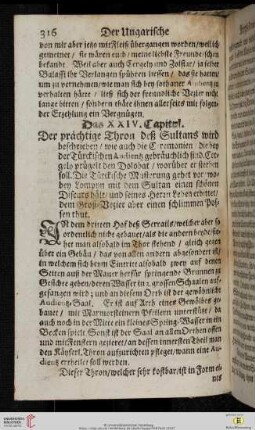 316 Der Ungarische
von mir aber jetz mit Fleiß übergangen worden/weil ich
gemeinet / sie wären euch/ meine liebste Freunde schon
bekandt. Weil aber auch Gergely und Zolstar/ ja selber
Balassi ihr Verlangen spühren liessen / das sie hatten/
um zu vernehmen/wie man sich bey solcher Audientz zu
verhalten häte / ließ sich der freundliche Vezier nicht
lange bitten / sondern thäte ihnen allerseits mit folgen-
der Erzehlung ein Vergnügen.
Das XXIV. Capitel.
Der prächtige Thron deß Sultans wird
beschrieben / wie auch die Ceremonien / die bey
der Türckischen Audientz gebräuchlich sind
soll. Die Türckische Musterung gehet vor
mit dem Sultan einen
Discurs hält und seines Herrn Leben
dem Groß-Vezier aber einen schlimmen Pos-
sen thut.
IN dem dritten Hof deß Serrails/welcher aber
ordentlich nicht gebauet/als die anderen beide
her man alsobald im Thor stehend / gleich gegen
über ein Gebäu / das von allen andern abgesondert ist/
in welchem sich beym Eintritt alsobald zwey auf beyde
Seiten auß der Mauer herfür springende Brunnen zu
Gesichte geben/deren Wasser in 2. grossen Schalen auf-
gefangen wird ; und an diesem Orth ist der gewöhnliche
Audientz-Saal. Er ist auf Arth eines Gewölbes ge-
bauet / mit Marmorsteinern Pfeilern unterstütze / da
auch noch in der Mitte ein kleines Spring-Wasser in ein
Becken spielt Sonst ist der Saal an allen Orthen offen
und mit Fenstern gezieret/ an dessen innersten Theil man
den Käyserl. Thron aufzurichten pfleget/wann eine Au-
dientz ertheilet soll werden.
Dieser Thron/welcher sehr kostbar/ist in Form ei-
nes